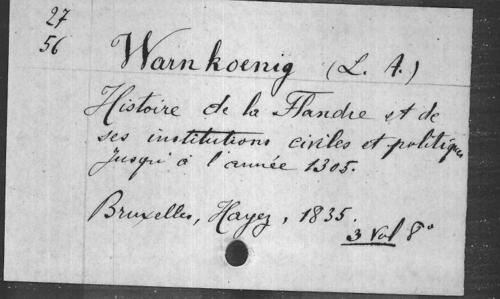 27
56
Warnkoenig (L. A.)
Histoire de la Flandre et de
ses institutions civiles et politiques
jusqu'à l'année 1305.
Bruxelles, Hayez, 1835.
3 Vol 8°